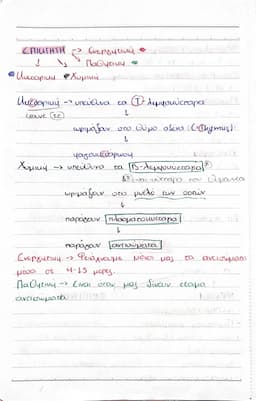 ΕΠΙΚΤΗΤΗ → Ενεργητική
→ Παθητική
Κυτταρική Χυμική
Κυτταρική → υπεύθυνα τα Τ-λεμφοκύτταρα
ωριμάζουν στο θύμο αδένα (Thymus)
Χυμική → υπεύθυνα τα Β-λεμφοκύτταρα
ωριμάζουν στο μυελό των οστών
παράγουν πλασματοκύτταρα
παράγουν αντισώματα
Ενεργητική → Φτιάχνουμε μόνοι μας τα αντισώματα
μέσα σε 4-15 μέρες.
Παθητική → Είναι όταν μας δίνουν έτοιμα
αντισώματα